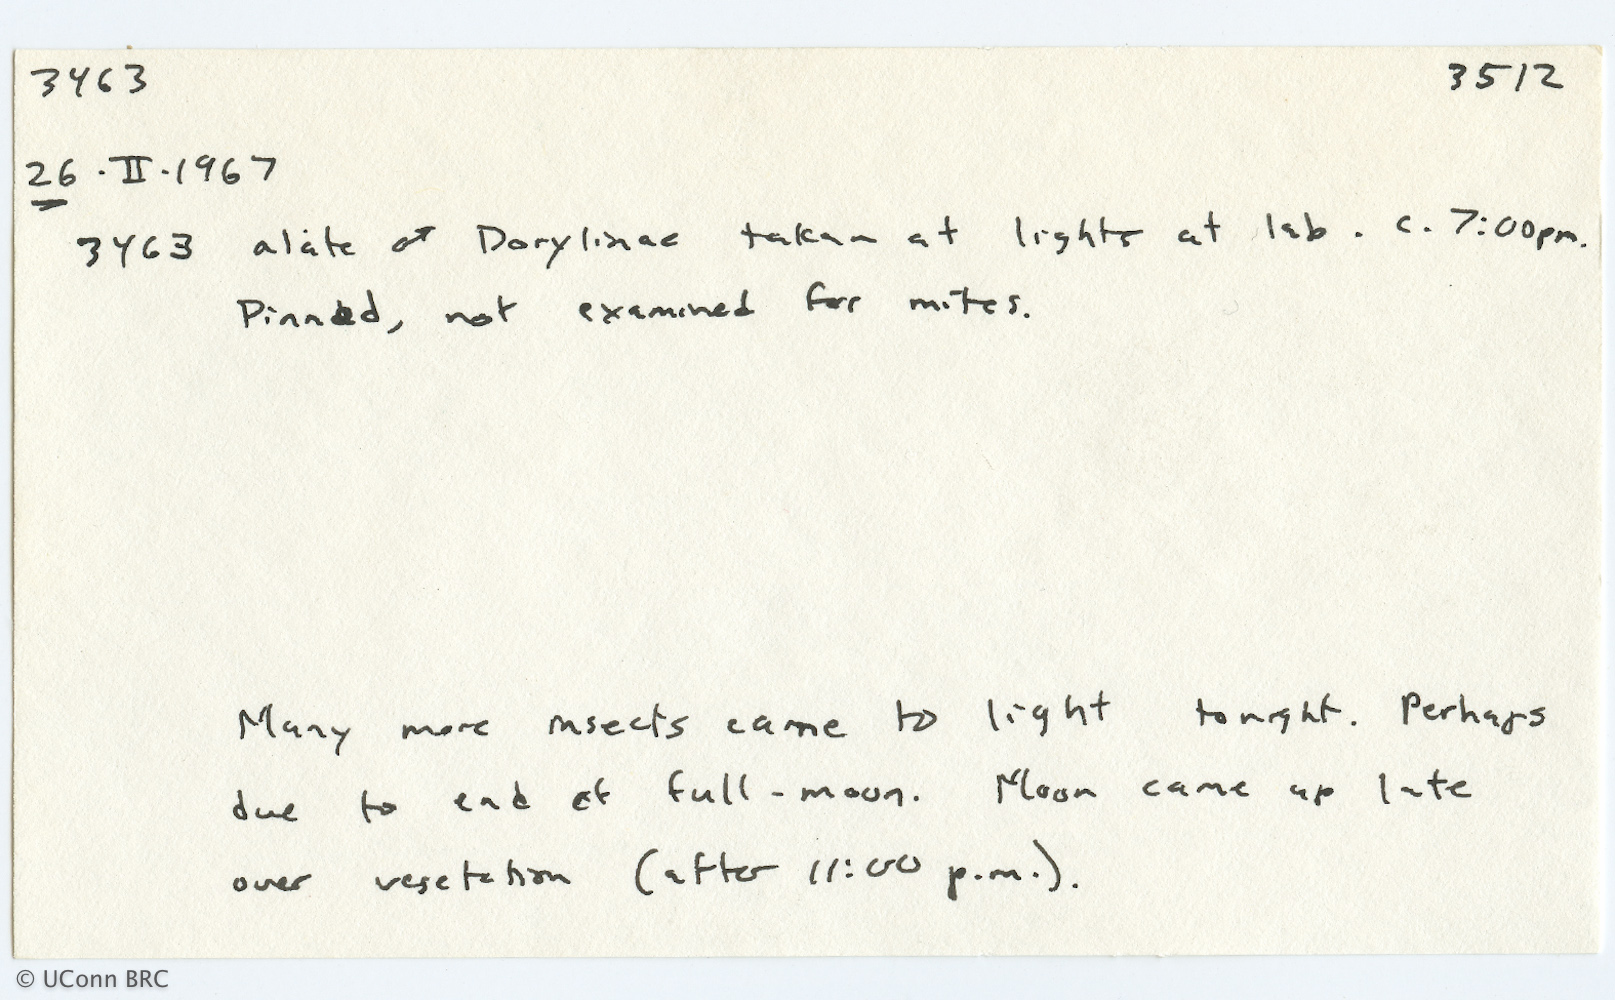 3463 3512
26 · II · 1967
3463 alate ♂ Dorylinae taken at lights at lab. c. 7:00pm.
Pinned, not examined for mites.
Many more insects came to light tonight. Perhaps
due to end of full-moon. Moon came up late
over vegetation (after 11:00 p.m.).
© UConn BRC